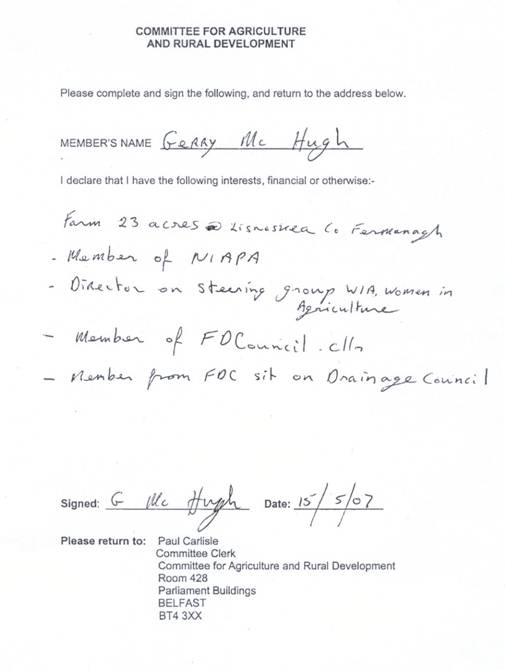 COMMITTEE FOR AGRICULTURE
AND RURAL DEVELOPMENT
Please complete and sign the following, and return to the address below.
MEMBER'S NAME Gerry Mc Hugh
I declare that I have the following interests, financial or otherwise:-
Farm 23 acres @ Lisnaskea Co Fermanagh
- Member of NIAPA
- Director on steering group WIA, Women in
Agriculture
- Member of FDCouncil. cllr
- Member from FDC sit on Drainage Council
Signed: G Mc Hugh Date: 15/5/07
Please return to: Paul Carlisle
Committee Clerk
Committee for Agriculture and Rural Development
Room 428
Parliament Buildings
BELFAST
BT4 3XX